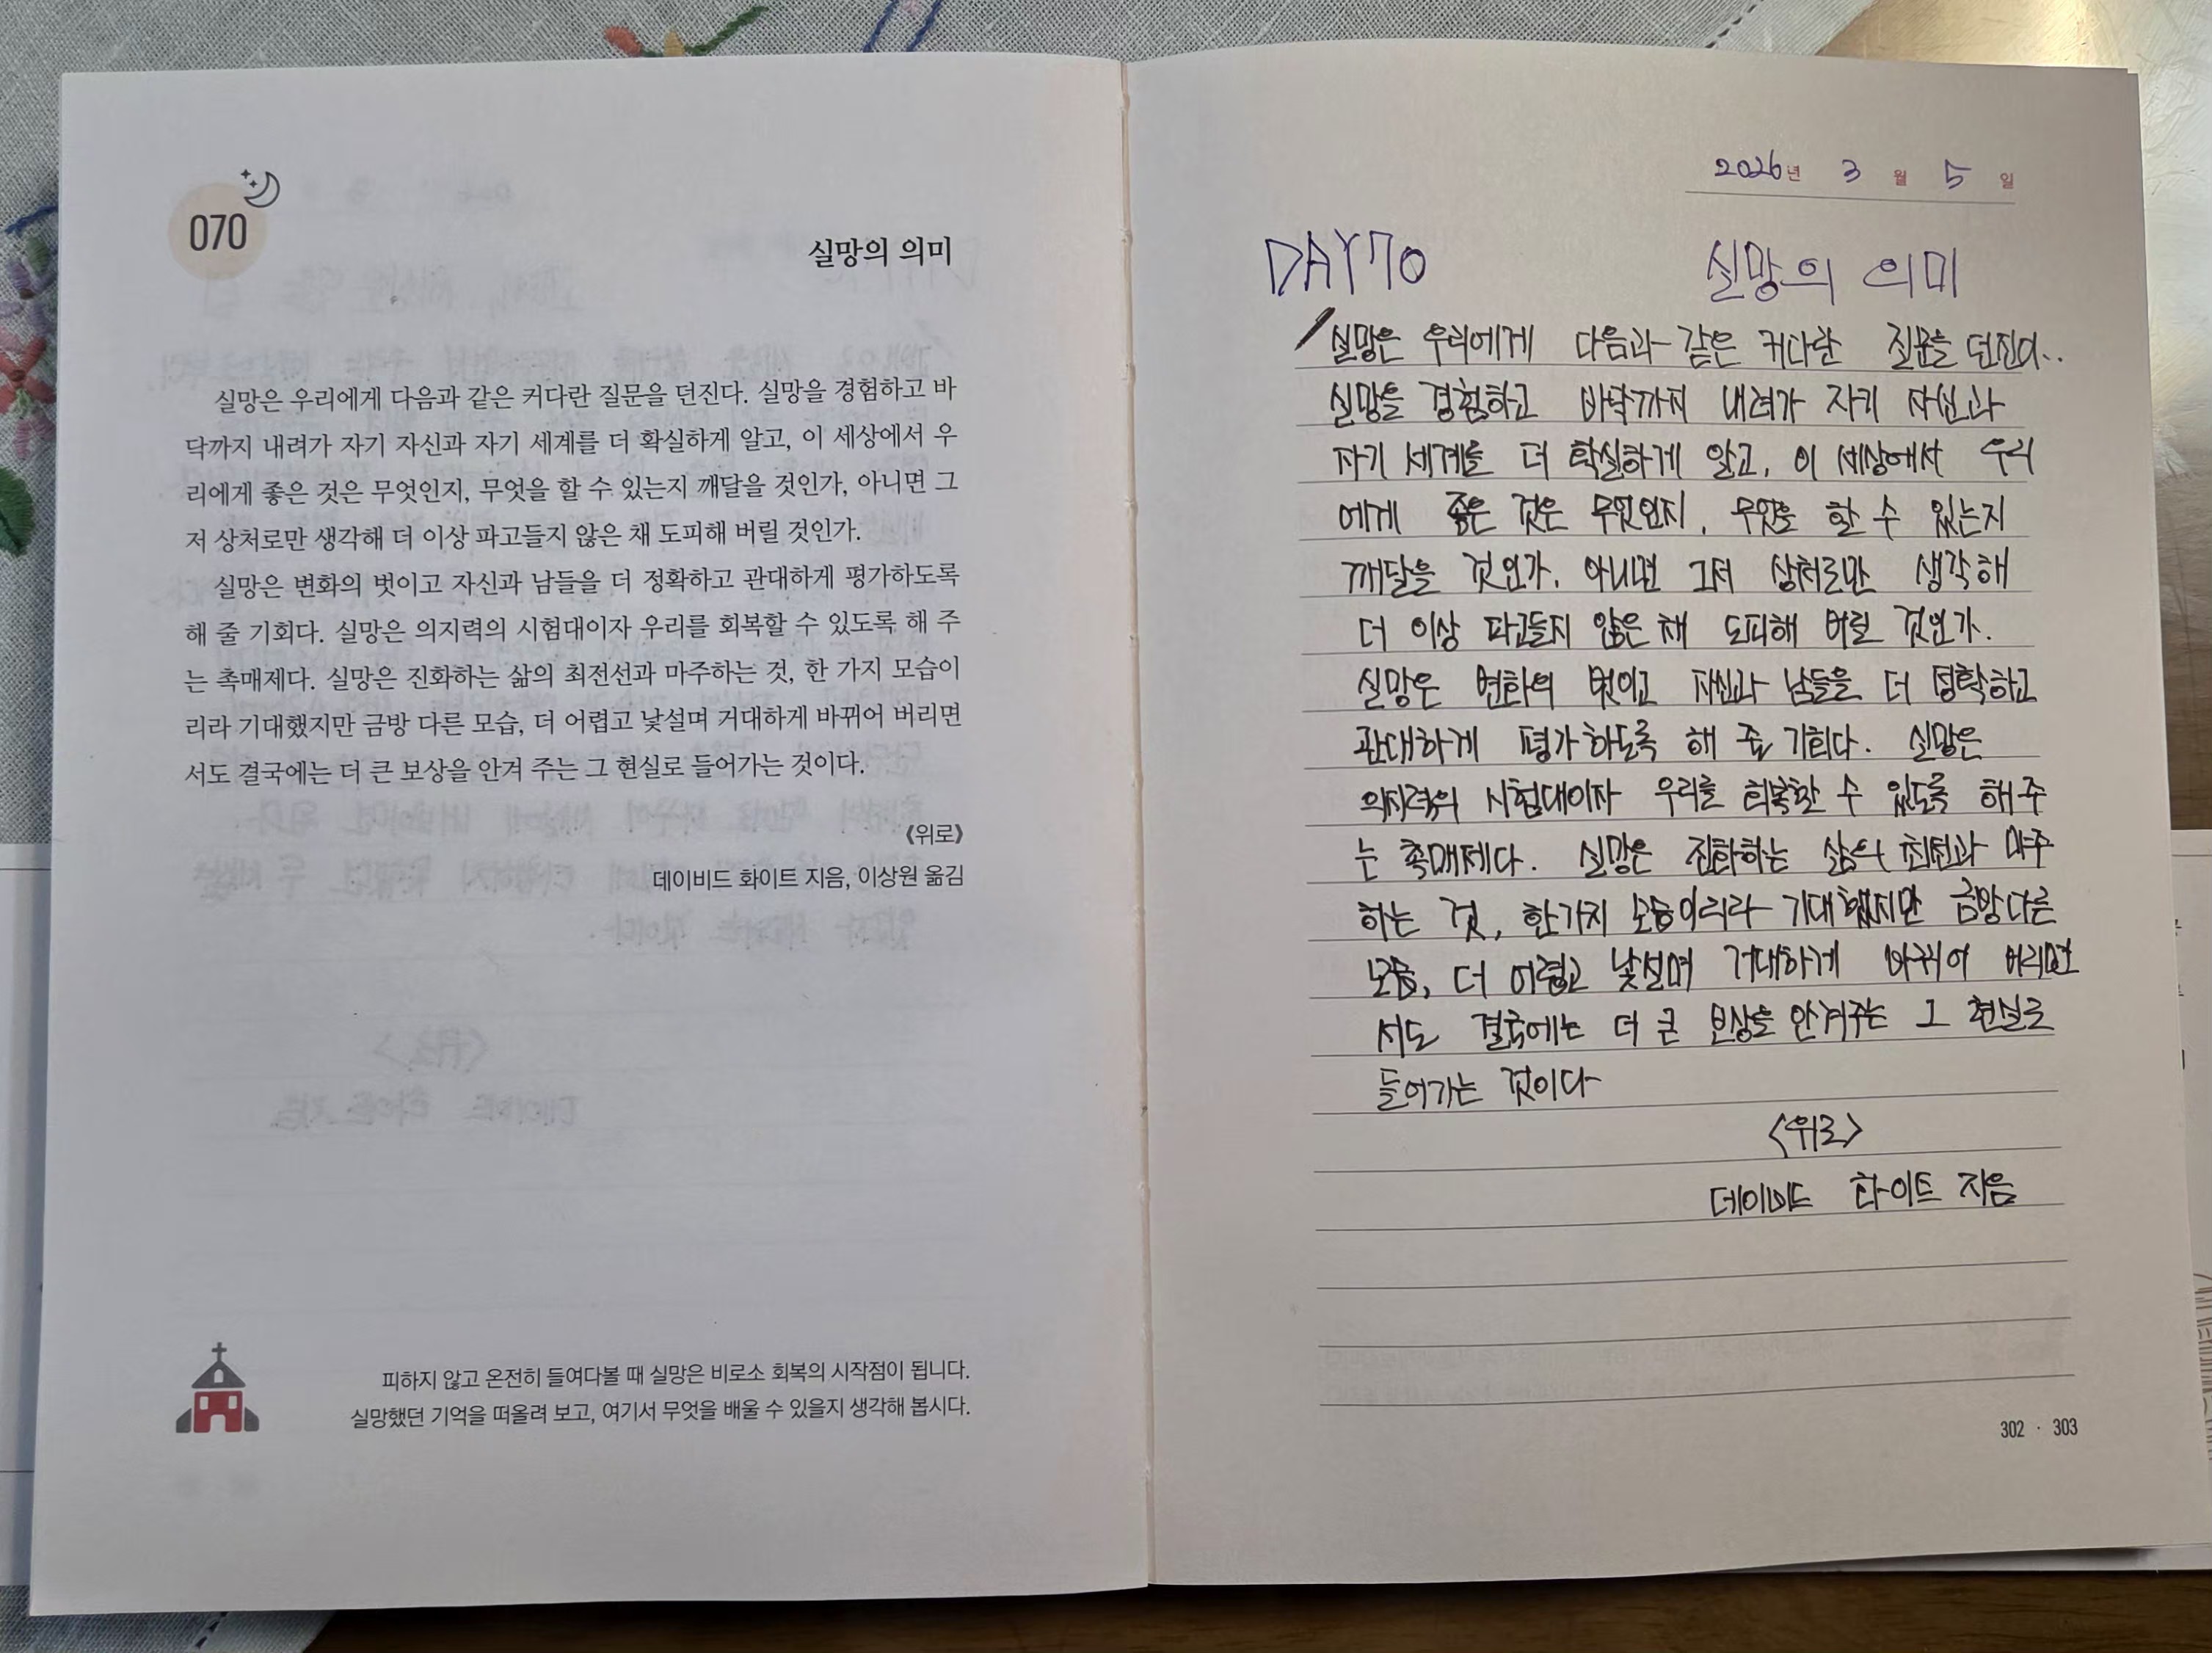 070
실망의 의미
실망은 우리에게 다음과 같은 커다란 질문을 던진다. 실망을 경험하고 바
닥까지 내려가 자기 자신과 자기 세계를 더 확실하게 알고, 이 세상에서 우
리에게 좋은 것은 무엇인지, 무엇을 할 수 있는지 깨달을 것인가, 아니면 그
저 상처로만 생각해 더 이상 파고들지 않은 채 도피해 버릴 것인가.
실망은 변화의 벗이고 자신과 남들을 더 정확하고 관대하게 평가하도록
해 줄 기회다. 실망은 의지력의 시험대이자 우리를 회복할 수 있도록 해 주
는 촉매제다. 실망은 진화하는 삶의 최전선과 마주하는 것, 한 가지 모습이
리라 기대했지만 금방 다른 모습, 더 어렵고 낯설며 거대하게 바뀌어 버리면
서도 결국에는 더 큰 보상을 안겨 주는 그 현실로 들어가는 것이다.
《위로》
데이비드 화이트 지음, 이상원 옮김
피하지 않고 온전히 들여다볼 때 실망은 비로소 회복의 시작점이 됩니다.
실망했던 기억을 떠올려 보고, 여기서 무엇을 배울 수 있을지 생각해 봅시다.
2026년 3월 5일
DAY70 실망의 의미
실망은 우리에게 다음과 같은 커다란 질문을 던진다..
실망을 경험하고 바닥까지 내려가 자기 자신과
자기 세계를 더 확실하게 알고, 이 세상에서 우리
에게 좋은 것은 무엇인지, 무엇을 할 수 있는지
깨달을 것인가, 아니면 그저 상처로만 생각해
더 이상 파고들지 않은 채 도피해 버릴 것인가.
실망은 변화의 벗이고 자신과 남들을 더 정확하고
관대하게 평가하도록 해 줄 기회다. 실망은
의지력의 시험대이자 우리를 회복할 수 있도록 해주
는 촉매제다. 실망은 진화하는 삶의 최전과 마주
하는 것, 한가지 모습이리라 기대했지만 금방다른
모습, 더 어렵고 낯설며 거대하게 바뀌어 버리면
서도 결국에는 더 큰 보상을 안겨주는 그 현실로
들어가는 것이다
<위로>
데이비드 화이트 지음
302 · 303